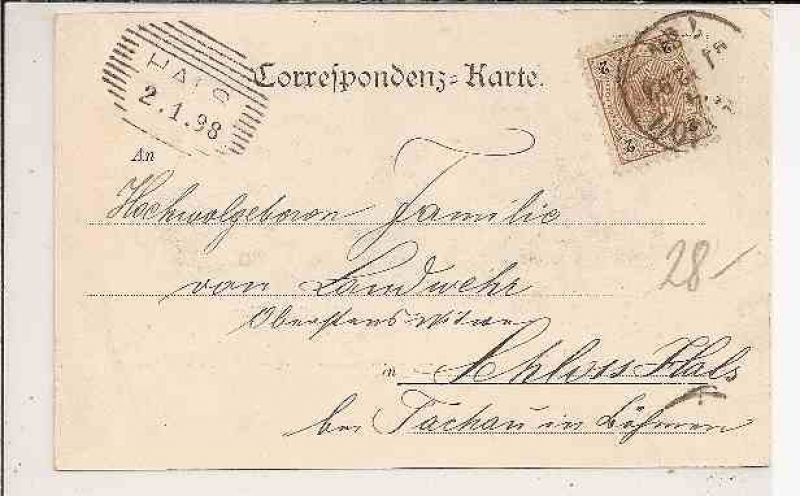 HALS
2.1.98
Correspondenz-Karte.
2
2
2
An
Hochwolgeboren Familie
von Landwehr
Oberstens-Witwe
28-
in Schloss Hals
bei Tachau in Böhmen